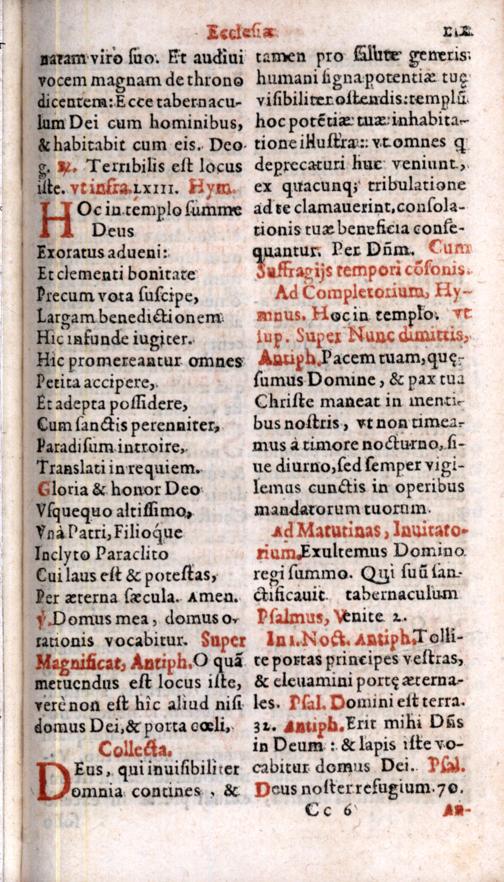 Ecclesiæ
natam viro suo. Et audiui
vocem magnam de throno
dicentem: Ecce tabernacu-
lum Dei cum hominibus,
& habitabit cum eis. Deo
g. ℟. Terribilis est locus
iste. vt infra. LXIII. Hym.
HOc in templo summe
Deus
Exoratus adueni:
Et clementi bonitate
Precum vota suscipe,
Largam benedictionem
Hic infunde iugiter.
Hic promereantur omnes
Petita accipere,
Et adepta possidere,
Cum sanctis perenniter,
Paradisum introire,
Translati in requiem.
Gloria & honor Deo
Vsquequo altissimo,
Vnà Patri, Filioq́ue
Inclyto Paraclito
Cui laus est & potestas,
Per æterna sæcula. Amen.
℣. Domus mea, domus o-
rationis vocabitur. Super
Magnificat, Antiph. O quā
metuendus est locus iste,
verè non est hîc aliud nisi
domus Dei, & porta cœli,
Collecta.
DEus, qui inuisibiliter
omnia contines, &
tamen pro salute generis
humani signa potentiæ tuę
visibiliter ostendis: templū
hoc potētiæ tuæ inhabita-
tione illustra: vt omnes q
deprecaturi huc veniunt,
ex quacunq; tribulatione
ad te clamauerint, consola-
tionis tuæ beneficia conse-
quantur. Per Dñm. Cum
Suffragijs tempori cōsonis.
Ad Completorium, Hy-
mnus. Hoc in templo. vt
sup. Super Nunc dimittis,
Antiph. Pacem tuam, quę-
sumus Domine, & pax tua
Christe maneat in menti-
bus nostris, vt non timea-
mus à timore nocturno, si-
ue diurno, sed semper vigi-
lemus cunctis in operibus
mandatorum tuorum.
Ad Matutinas, Inuitato-
rium. Exultemus Domino
regi summo. Qui suū san-
ctificauit tabernaculum
Psalmus, Venite 2.
In 1. Noct. Antiph. Tolli-
te portas principes vestras,
& eleuamini portę æterna-
les. Psal. Domini est terra.
32. Antiph. Erit mihi Dñs
in Deum: & lapis iste vo-
cabitur domus Dei. Psal.
Deus noster refugium. 70.
Cc 6 An-